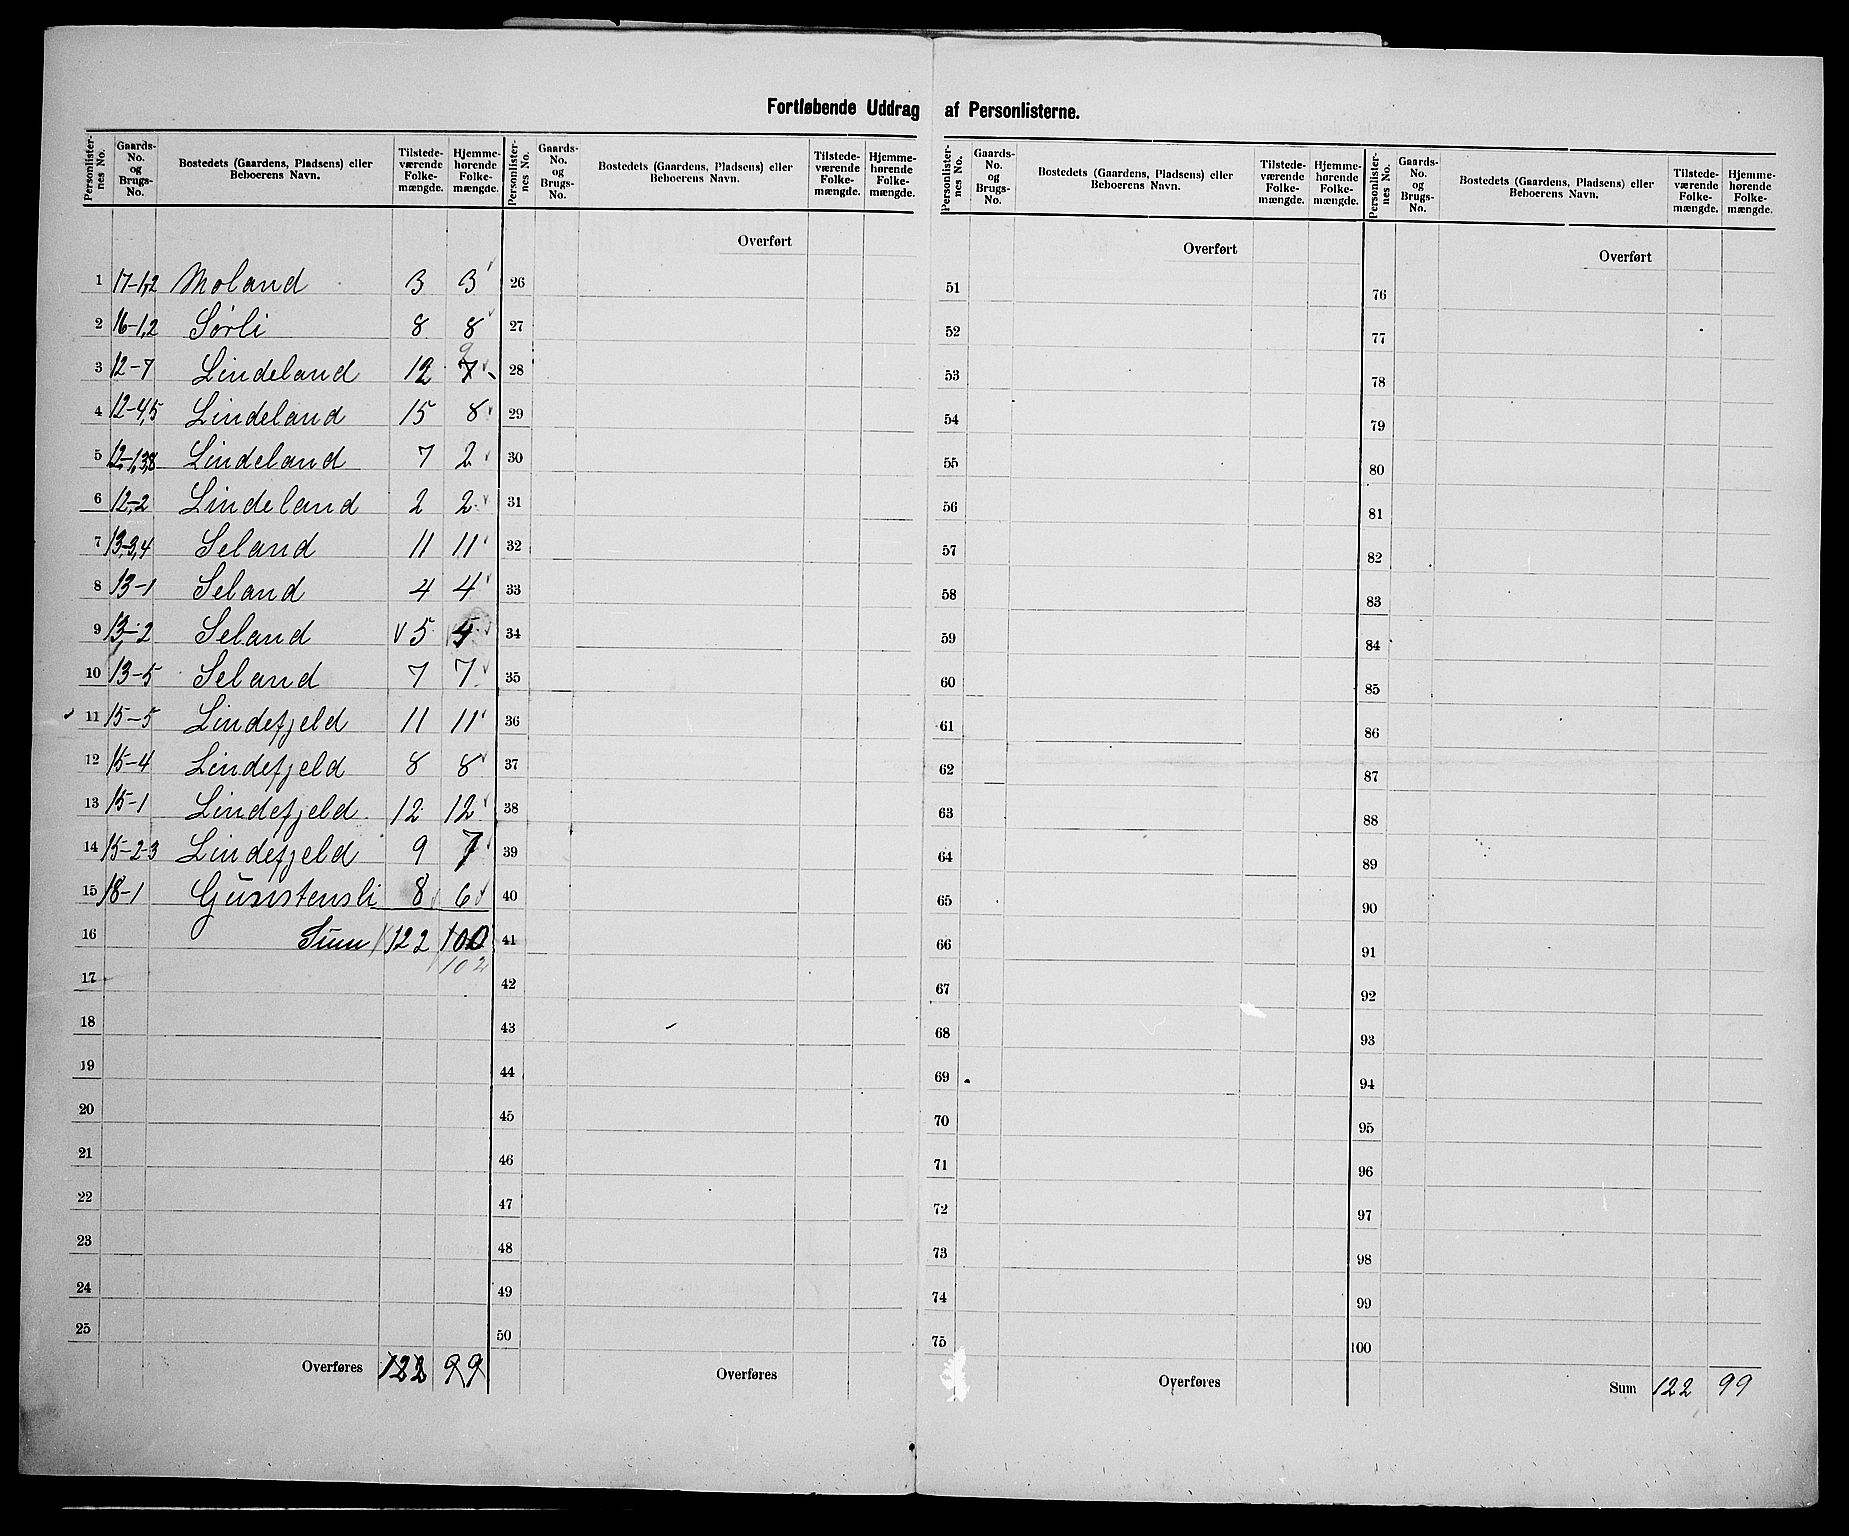 Fortløbende Uddrag af Personlisterne.
Personlister- nes No. | Gaards- No. og Brugs- No. | Bostedets (Gaardens, Pladsens) eller Beboerens Navn. | Tilstede- værende Folke- mængde. | Hjemme- hørende Folke- mængde.
1 17-1,2 Moland 3 3
2 16-1,2 Sørli 8 8
3 12-7 Lindeland 12 7 9
4 12-4,5 Lindeland 15 8
5 12-1,3,8 Lindeland 7 2
6 12-2 Lindeland 2 2
7 13-3,4 Seland 11 11
8 13-1 Seland 4 4
9 13-2 Seland 5 5
10 13-5 Seland 7 7
11 15-5 Lindefjeld 11 11
12 15-4 Lindefjeld 8 8
13 15-1 Lindefjeld 12 12
14 15-2-3 Lindefjeld 9 7
15 18-1 Gunstensli 8 6
16 Sum 122 100
102
17
18
19
20
21
22
23
24
25
Overføres 122 99
Personlister- nes No. | Gaards- No. og Brugs- No. | Bostedets (Gaardens, Pladsens) eller Beboerens Navn. | Tilstede- værende Folke- mængde. | Hjemme- hørende Folke- mængde.
Overført
26
27
28
29
30
31
32
33
34
35
36
37
38
39
40
41
42
43
44
45
46
47
48
49
50
Overføres
Personlister- nes No. | Gaards- No. og Brugs- No. | Bostedets (Gaardens, Pladsens) eller Beboerens Navn. | Tilstede- værende Folke- mængde. | Hjemme- hørende Folke- mængde.
Overført
51
52
53
54
55
56
57
58
59
60
61
62
63
64
65
66
67
68
69
70
71
72
73
74
75
Overføres
Personlister- nes No. | Gaards- No. og Brugs- No. | Bostedets (Gaardens, Pladsens) eller Beboerens Navn. | Tilstede- værende Folke- mængde. | Hjemme- hørende Folke- mængde.
Overført
76
77
78
79
80
81
82
83
84
85
86
87
88
89
90
91
92
93
94
95
96
97
98
99
100
Sum 122 99